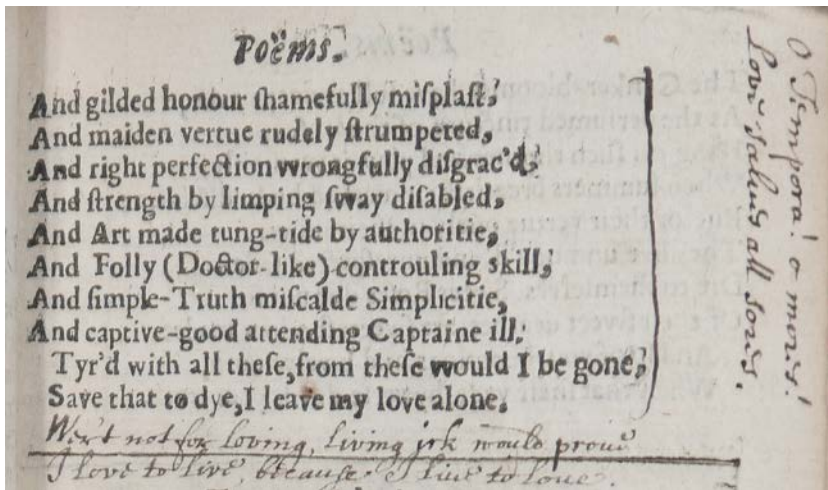 Poëms.
And gilded honour ſhamefully miſplaſt,
And maiden vertue rudely ſtrumpeted,
And right perfection wrongfully diſgrac'd,
And ſtrength by limping ſway diſabled,
And Art made tung-tide by authoritie,
And Folly (Doctor-like) controuling skill,
And ſimple-Truth miſcalde Simplicitie,
And captive-good attending Captaine ill,
Tyr'd with all theſe, from theſe would I be gone,
Save that to dye, I leave my love alone,
Wer't not for loving, living irk would prove
I love to live, because I live to love.
O Tempora! o mores!
Love salves all sores.